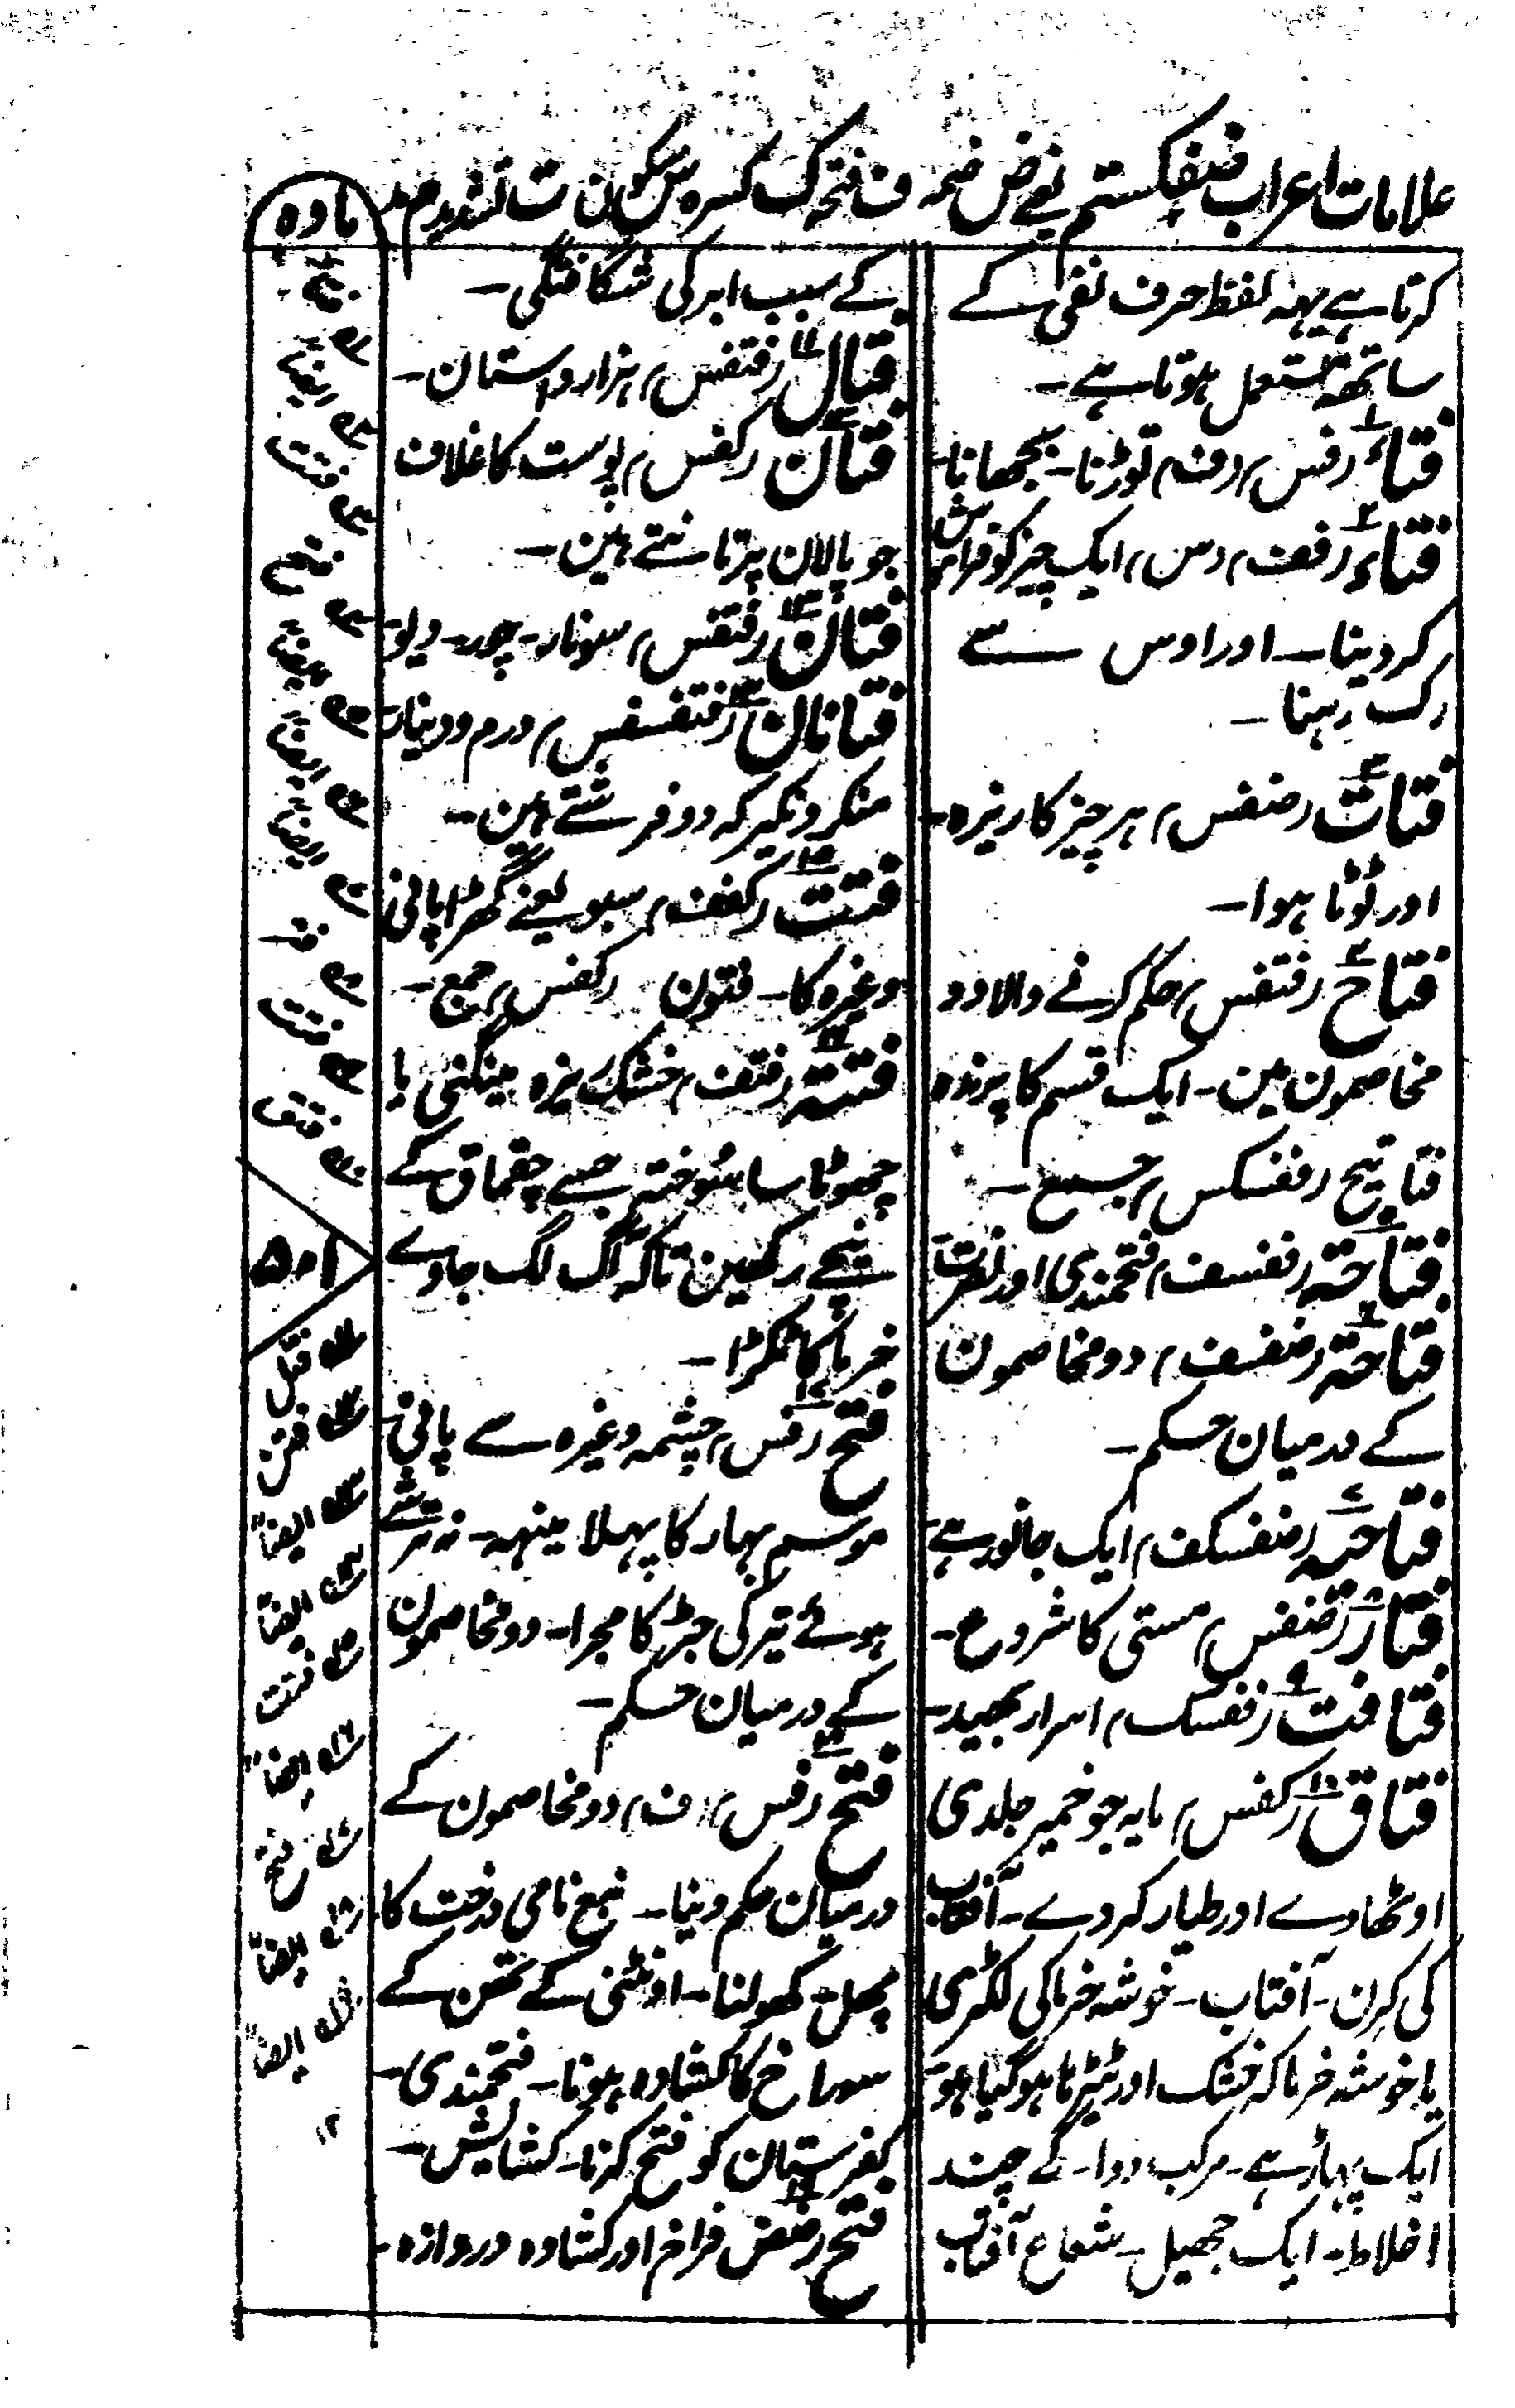 علامات اعراب ضفکستم یعنے ض ضمہ ف فتحہ ک کسرہ س سکون ت تشدید م مد
مادہ
کرتا ہے یہہ لفظ حرف نفی کے
ساتھہ مستعمل ہوتا ہے۔
فتاء (فس) (ف) توڑنا۔ بجھانا۔
فتاء (ففف) (س) ایک چیز کو فراموش
کر دینا۔ اور اوس سے
رک رہنا۔
فتات (ضفس) ہر چیز کا ریزہ۔
اور ٹوٹا ہوا۔
فتاح (فتفس) حکم کرنے والا دو
مخاصمون مین۔ ایک قسم کا پرندہ
فتاتیح (ففسکس) جمع۔
فتاحۃ (ففسف) فتحمندی اور نصرت
فتاحۃ (ضفسف) دو مخاصمون
کے درمیان حکم۔
فتاحیہ (ضفسکف) ایک جانور ہے۔
فتار (ضفس) مستی کا شروع۔
فتافت (ففسک) اسرار بھید۔
فتاق (کفس) مایہ جو خمیر جلدی
اوٹھا دے اور طیار کر دے۔ آفتاب
کی کرن۔ آفتاب۔ خوشہ خرما کی لکڑی
یا خوشہ خرما کہ خشک اور ٹیڑھا ہو گیا ہو۔
ایک پہاڑ ہے۔ مرکب دوا۔ کے چند
اخلاط۔ ایک جھیل۔ شعاع آفتاب
کے سبب ابر کی شگافتگی۔
فتال (فتفس) ہزار داستان۔
فتان (کفس) پوست کا غلاف
جو پالان پر تانتے ہین۔
فتان (فتفس) سونار۔ چور۔ دیو۔
فتانان (فتفسفس) درم و دینار۔
منکر و نکیر کہ دو فرشتے ہین۔
فتت (کفف) سبو یعنے گھڑا پانی
وغیرہ کا۔ فتون (کفس) جمع۔
فتتہ (فتف) خشک ریزہ مینگنی یا
چھوٹا سا سوختہ جسے چقماق کے
نیچے رکھین تاکہ آگ لگ جاوے
خرما کا ٹکڑا۔
فتح (فس) چشمہ وغیرہ سے پانی۔
موسم بہار کا پہلا مینہہ۔ نہ ترشے
ہوئے تیر کی جڑ کا مجرا۔ دو مخاصمون
کے درمیان حکم۔
فتح (فس) (ف) دو مخاصمون کے
درمیان حکم دینا۔ نبع نامی درخت کا
پھل۔ کھولنا۔ اونٹنی کے تھن کے
سوراخ کا کشادہ ہونا۔ فتحمندی۔
کفرستان کو فتح کرنا۔ کشایش۔
فتح (ضض) فراخ اور کشادہ دروازہ۔
ایضاً
فتت
فتح
ایضاً
ایضاً
ایضاً
فتر
فتفت
فتق
۱۱ فتل
۱۲ فتن
۱۳ ایضاً
۱۴ ایضاً
۱۵ فتت
۱۶ ایضاً
۱۷ فتح
۱۸ ایضاً
۱۹ ایضاً
۱۲